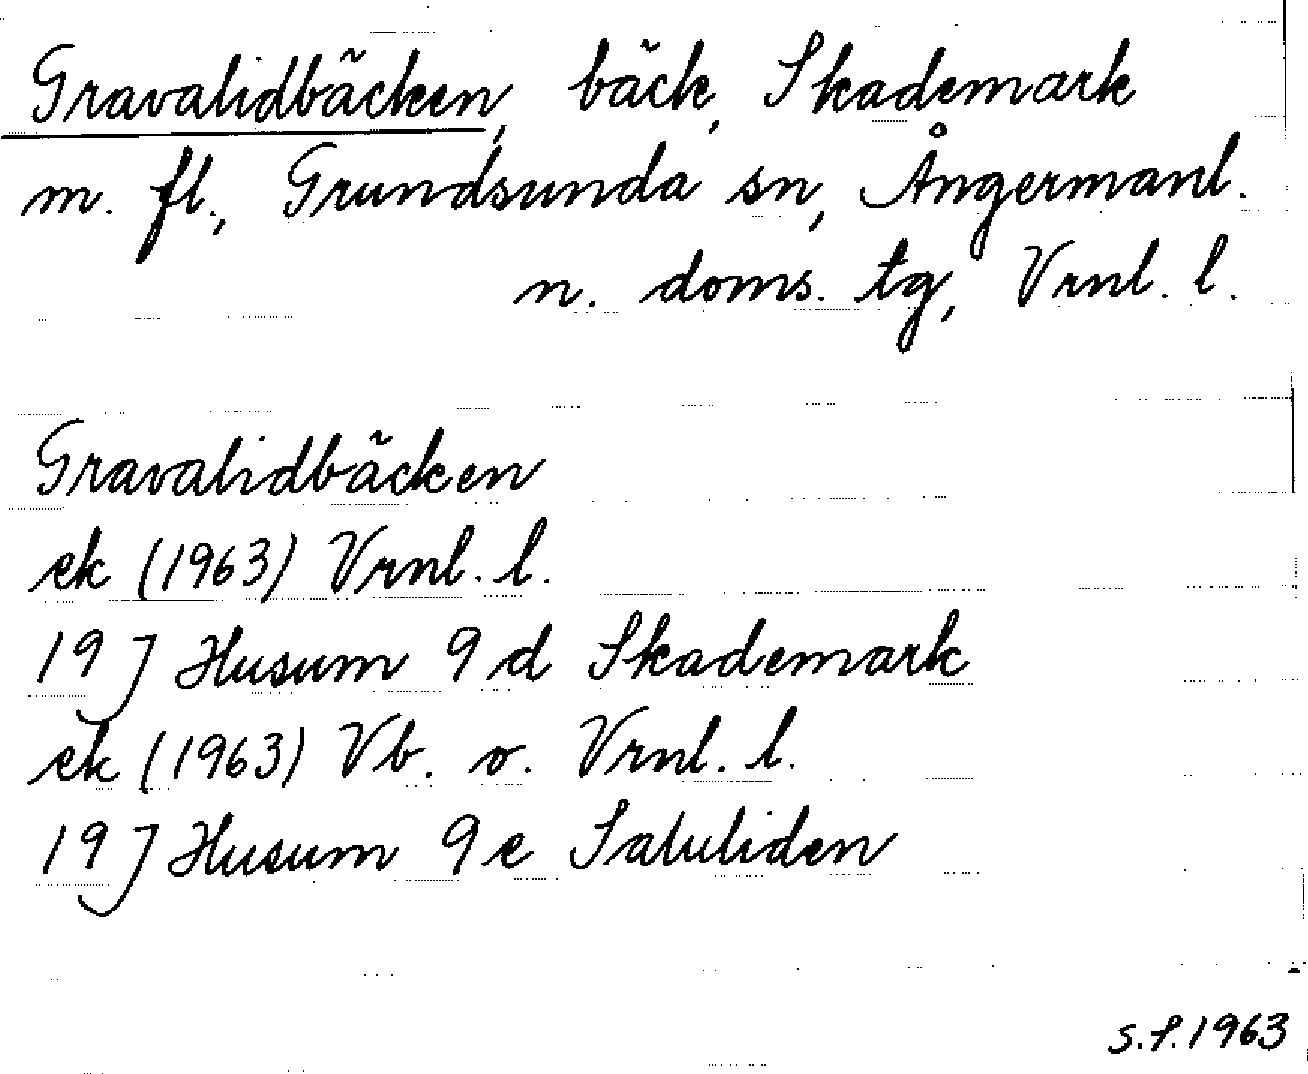 Gravalidbäcken, bäck, Skademark
m. fl., Grundsunda sn, Ångermanl.
n. doms. tg, Vrnl. l.
Gravalidbäcken
ek (1963) Vrnl. l.
19 J Husum 9 d Skademark
ek (1963) Vb. o. Vrnl. l.
19 J Husum 9 e Saluliden
s.f. 1963